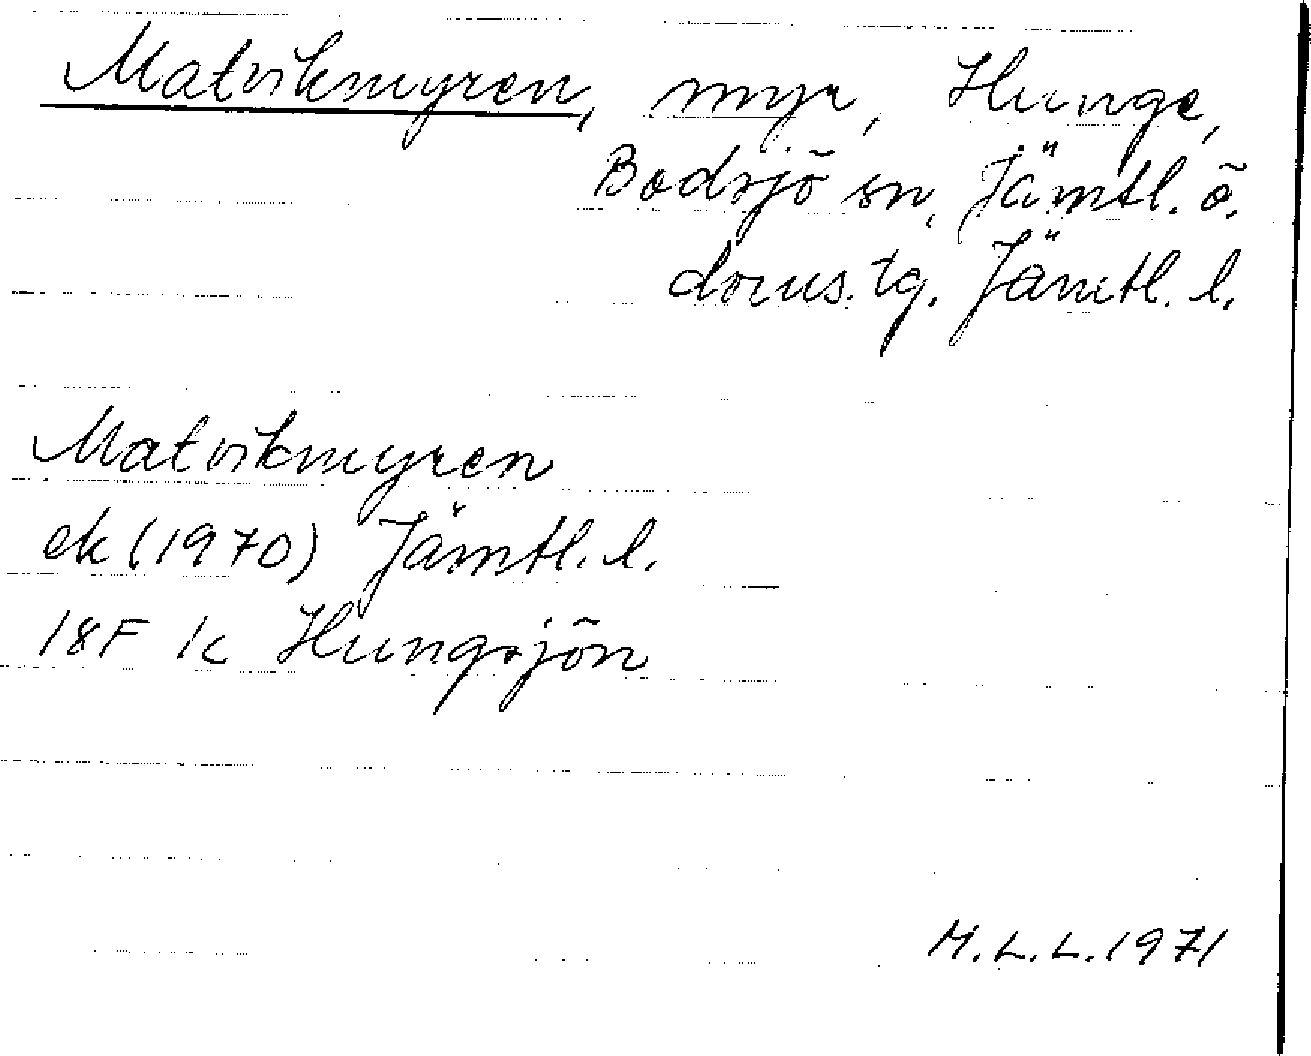 Matvikmyren, myr, Hunge,
Bodsjö sn, Jämtl. ö.
doms. tg. Jämtl. l.
Matvikmyren
ek (1970) Jämtl. l.
18F 1c Hungsjön
M.L.L. 1971